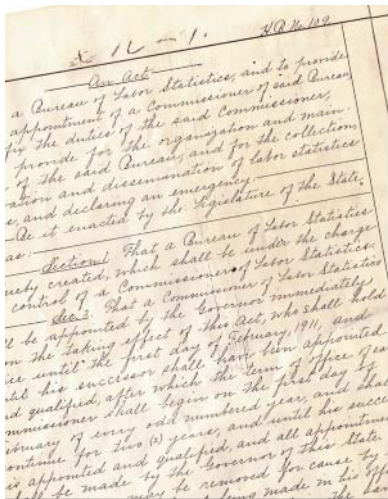 H.B. No. 109
An Act
a Bureau of Labor Statistics, and to provide
appointment of a Commissioner of said Bureau,
fix the duties of the said Commissioner,
provide for the organization and main-
of the said Bureau, and for the collection,
ation and dissemination of labor statistics
e, and declaring an emergency.
Be it enacted by the Legislature of the State
as:
Section 1. That a Bureau of Labor Statistics
ereby created, which shall be under the charge
control of a Commissioner of Labor Statistics.
Sec. 2. That a Commissioner of Labor Statistics
ll be appointed by the Governor immediately
on the taking effect of this Act, who shall hold
ice until the first day of February, 1911, and
til his successor shall have been appointed
d qualified, after which the term of office of ea
mmissioner shall begin on the first day of
ebruary of every odd numbered year, and sha
ontinue for two (2) years, and until his succe
is appointed and qualified, and all appointme
hall be made by the Governor of this State
may be removed for cause by
being made in his off
the sa